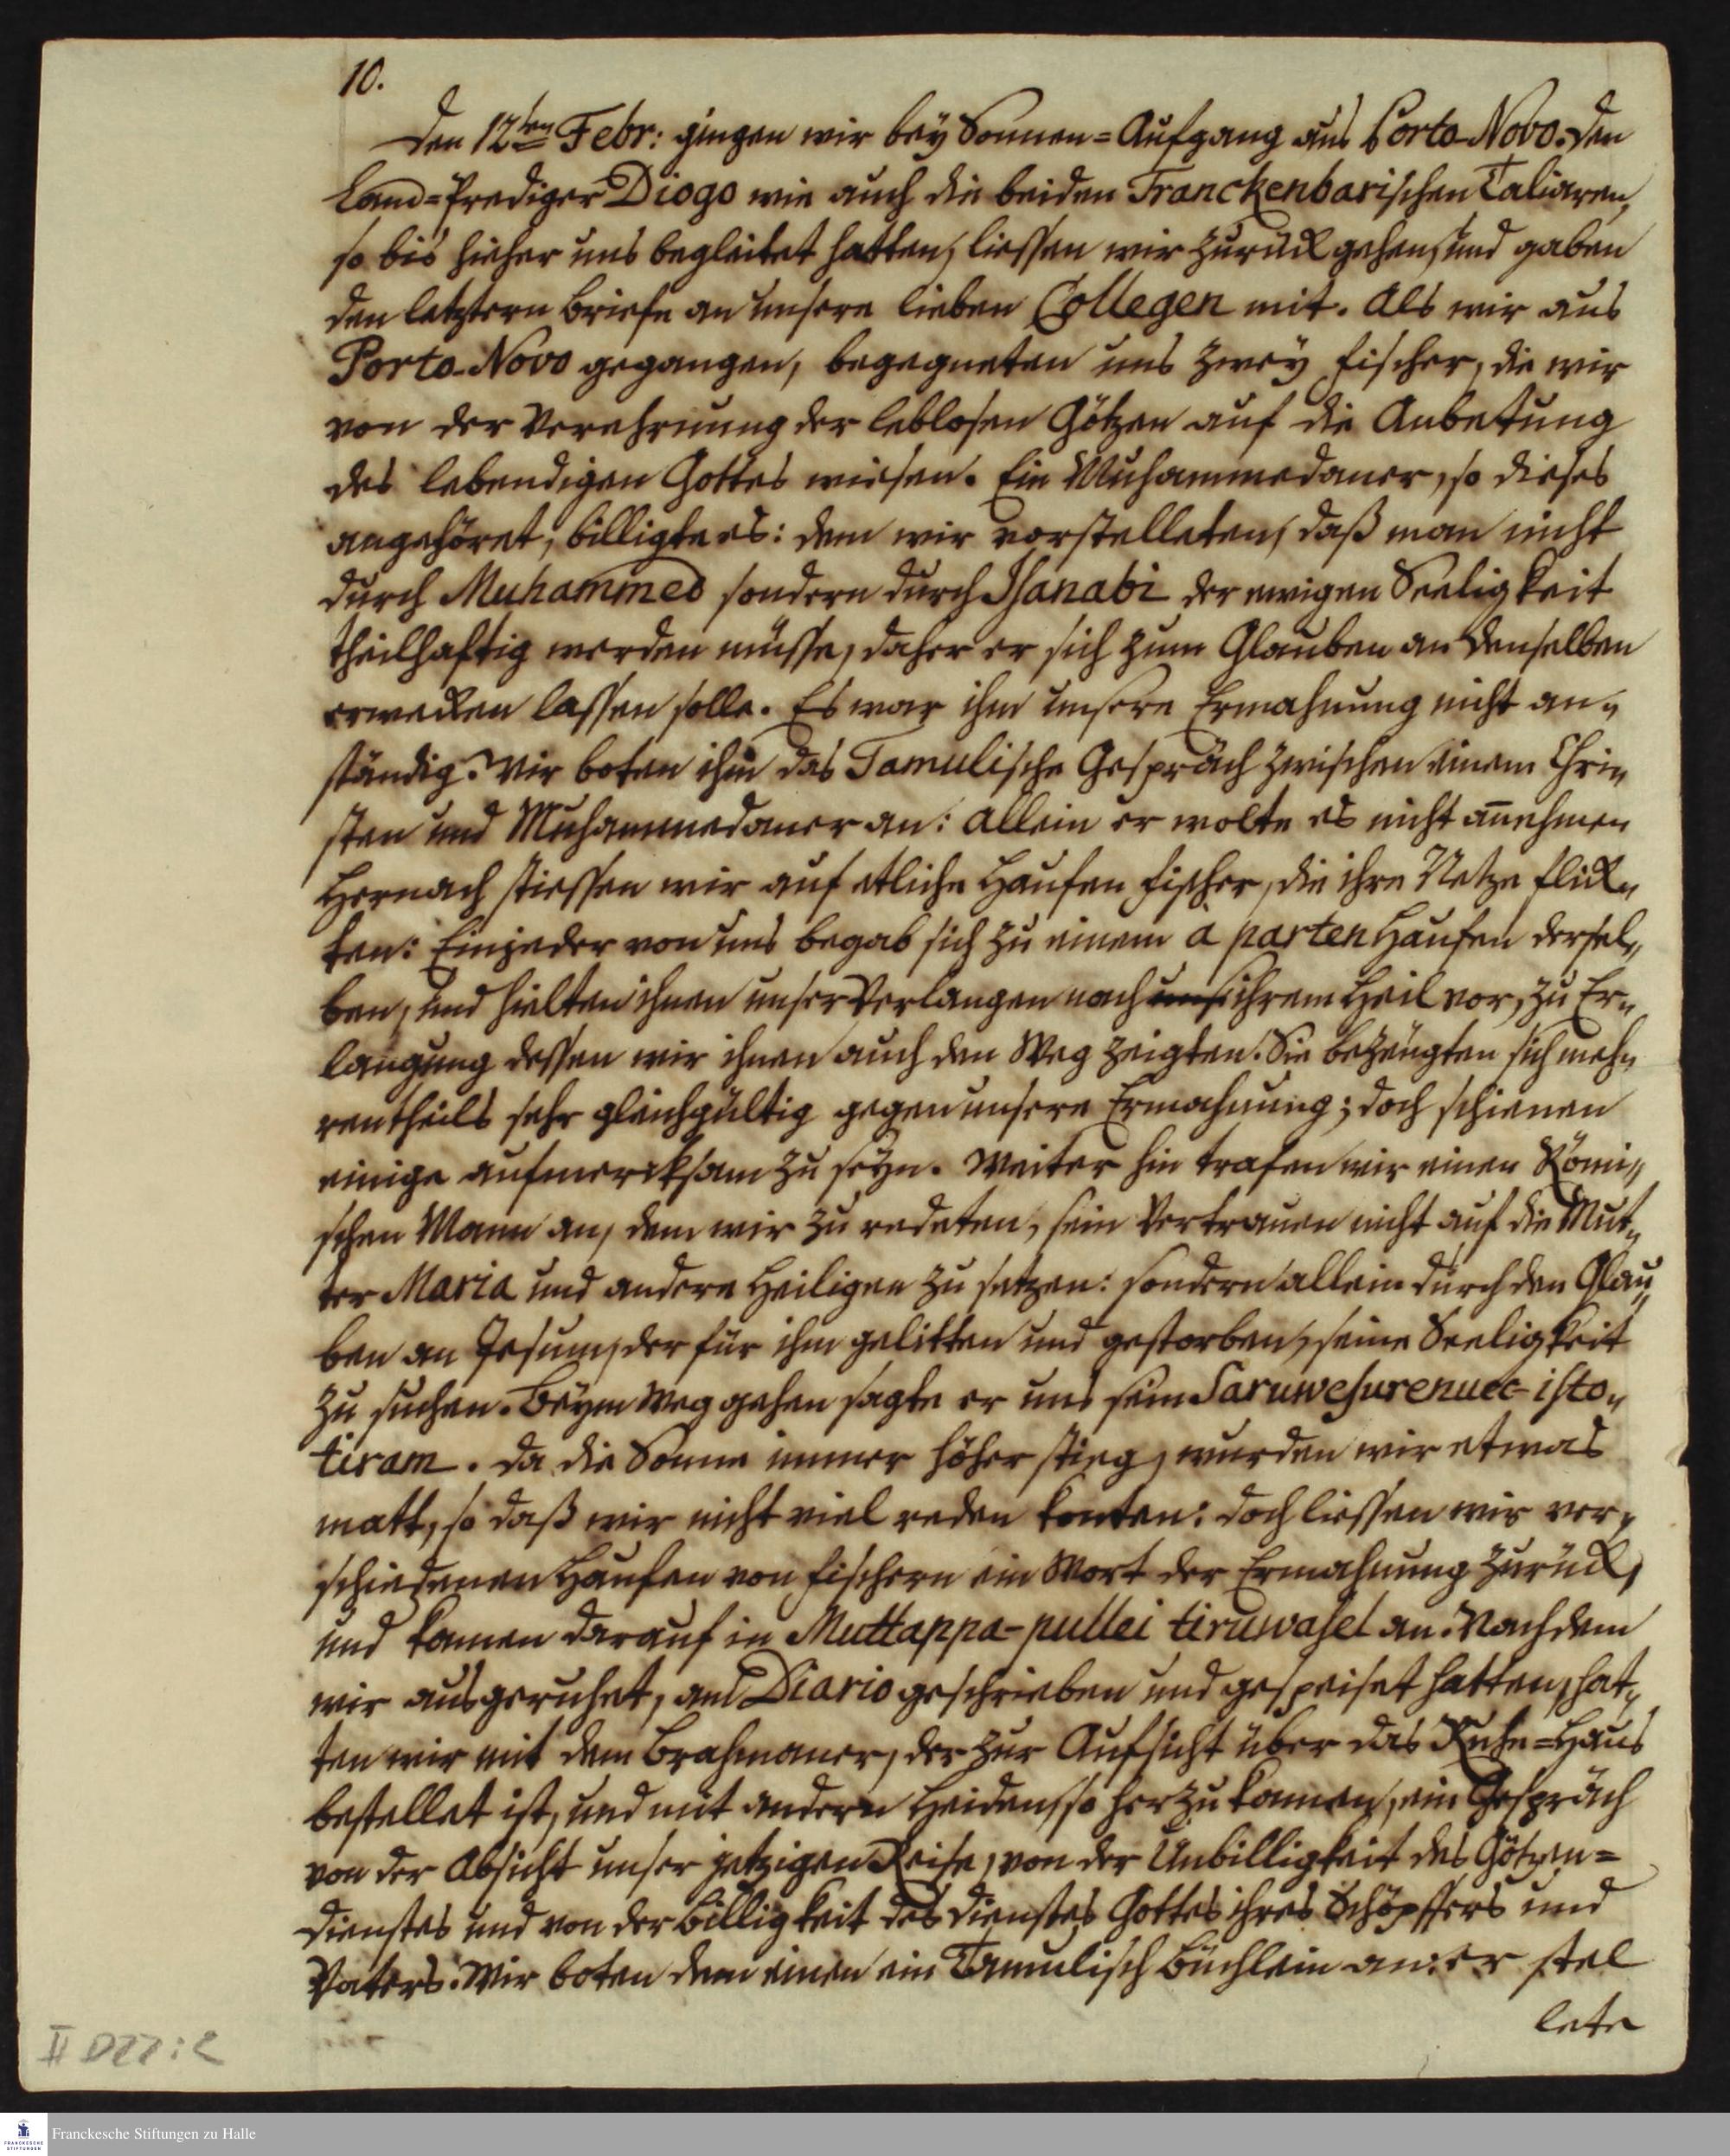 10.
Den 12ten Febr: gingen wir bey Sonnen=Aufgang aus Porto-Novo. Den
Land=Prediger Diogo wie auch die beiden Tranckenbarischen Taliaren,
so bis hieher uns begleitet hatten, liessen wir zurück gehen, und gaben
den letztern Briefe an unsere lieben Collegen mit. Als wir aus
Porto-Novo gegangen, begegneten uns zwey Fischer, die wir
von der Verehrung der leblosen Götzen auf die Anbetung
des lebendigen Gottes wiesen. Ein Muhammedaner, so dieses
angehöret, billigte es: dem wir vorstelleten, daß man nicht
durch Muhammed sondern durch Isanabi der ewigen Seeligkeit
theilhaftig werden müsse, daher er sich zum Glauben an denselben
erwecken lassen solle. Es war ihm unsere Ermahnung nicht an„
ständig. Wir boten ihm das Tamulische Gespräch zwischen einem Chri„
sten und Muhammedaner an: allein er wolte es nicht an̄ehmen
Hernach stiessen wir auf etliche Haufen Fischer, die ihre Netze flick„
ten: Ein jeder von uns begab sich zu einem à parten Haufen dersel„
ben, und hielten ihnen unser Verlangen nach ihrem Heil vor, zu Er„
langung dessen wir ihnen auch den Weg zeigten. Sie bezeugten sich meh„
rentheils sehr gleichgültig gegen unsere Ermahnung; doch schienen
einige aufmercksam zu seyn. Weiter hin trafen wir einen Römi„
schen Mann an, dem wir zu redeten, sein Vertrauen nicht auf die Mut„
ter Maria und andere Heiligen zu setzen: sondern allein durch den Glau„
ben an Jesum, der für ihm gelitten und gestorben, seine Seeligkeit
zu suchen. Beym Weg gehen sagte er uns sein Saruwesurenuec-isto„
tiram. Da die Sonne immer höher stieg, wurden wir etwas
matt, so daß wir nicht viel reden konten: doch liessen wir ver„
schiedenen Haufen von Fischern ein Wort der Ermahnung zurück,
und kamen darauf in Muttappa-pullei tiruwasel an. Nachdem
wir ausgeruhet, am Diario geschrieben und gespeiset hatten, hat„
ten wir mit dem Brahmaner, der zur Aufsicht über das Ruhe=Haus
bestellet ist, und mit andern Heiden, so herzu kamen, ein Gespräch
von der Absicht unser jetzigen Reise, von der Unbilligkeit des Götzen=
dienstes und von der Billigkeit des Dienstes Gottes ihres Schöpffers und
Vaters. Wir boten dem einen ein Tamulisch Büchlein an: er stel
lete
II D27:2
Franckesche Stiftungen zu Halle
FRANCKESCHE
STIFTUNGEN